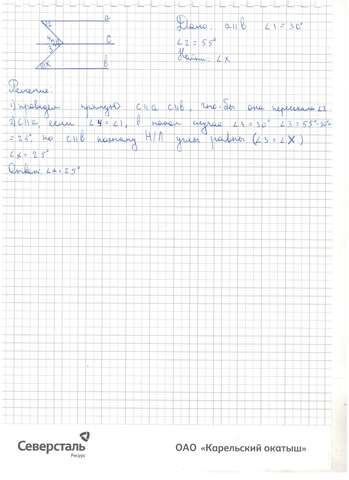 a
1
4
c
3
x
в
Дано: a||в ∠1=30°
∠2=55°
Найти: ∠x
Решение:
1) проведем прямую c||a c||в, что-бы она пересекала ∠2
2) c||a, если ∠4=∠1, в нашем случае ∠4=30° ∠3=55°-30°
=25°, но c||в поэтому Н/Л углы равны (∠3=∠X)
∠x=25°
Ответ: ∠x=25°
Северсталь
Ресурс
ОАО «Карельский окатыш»